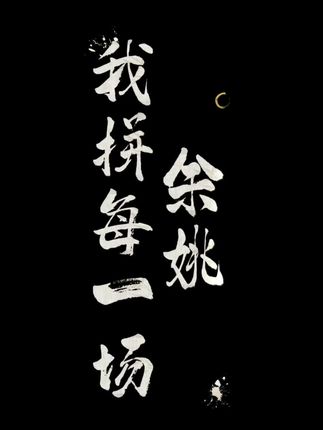 余姚
我拼每一场